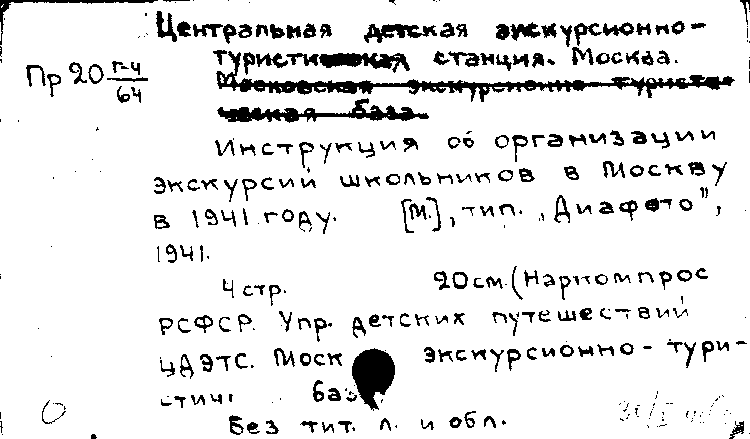 Центральная детская экскурсионно-
туристическая станция. Москва.
Пр 20 г-4/64
Московская экскурсионно-туристи-
ческая база.
Инструкция об организации
экскурсий школьников в Москву
в 1941 году. [М.], тип. „Диафото",
1941.
4 стр. 20 см. (Наркомпрос
РСФСР. Упр. детских путешествий
ЦДЭТС. Моск экскурсионно-тури-
стич баз
Без тит. л. и обл.